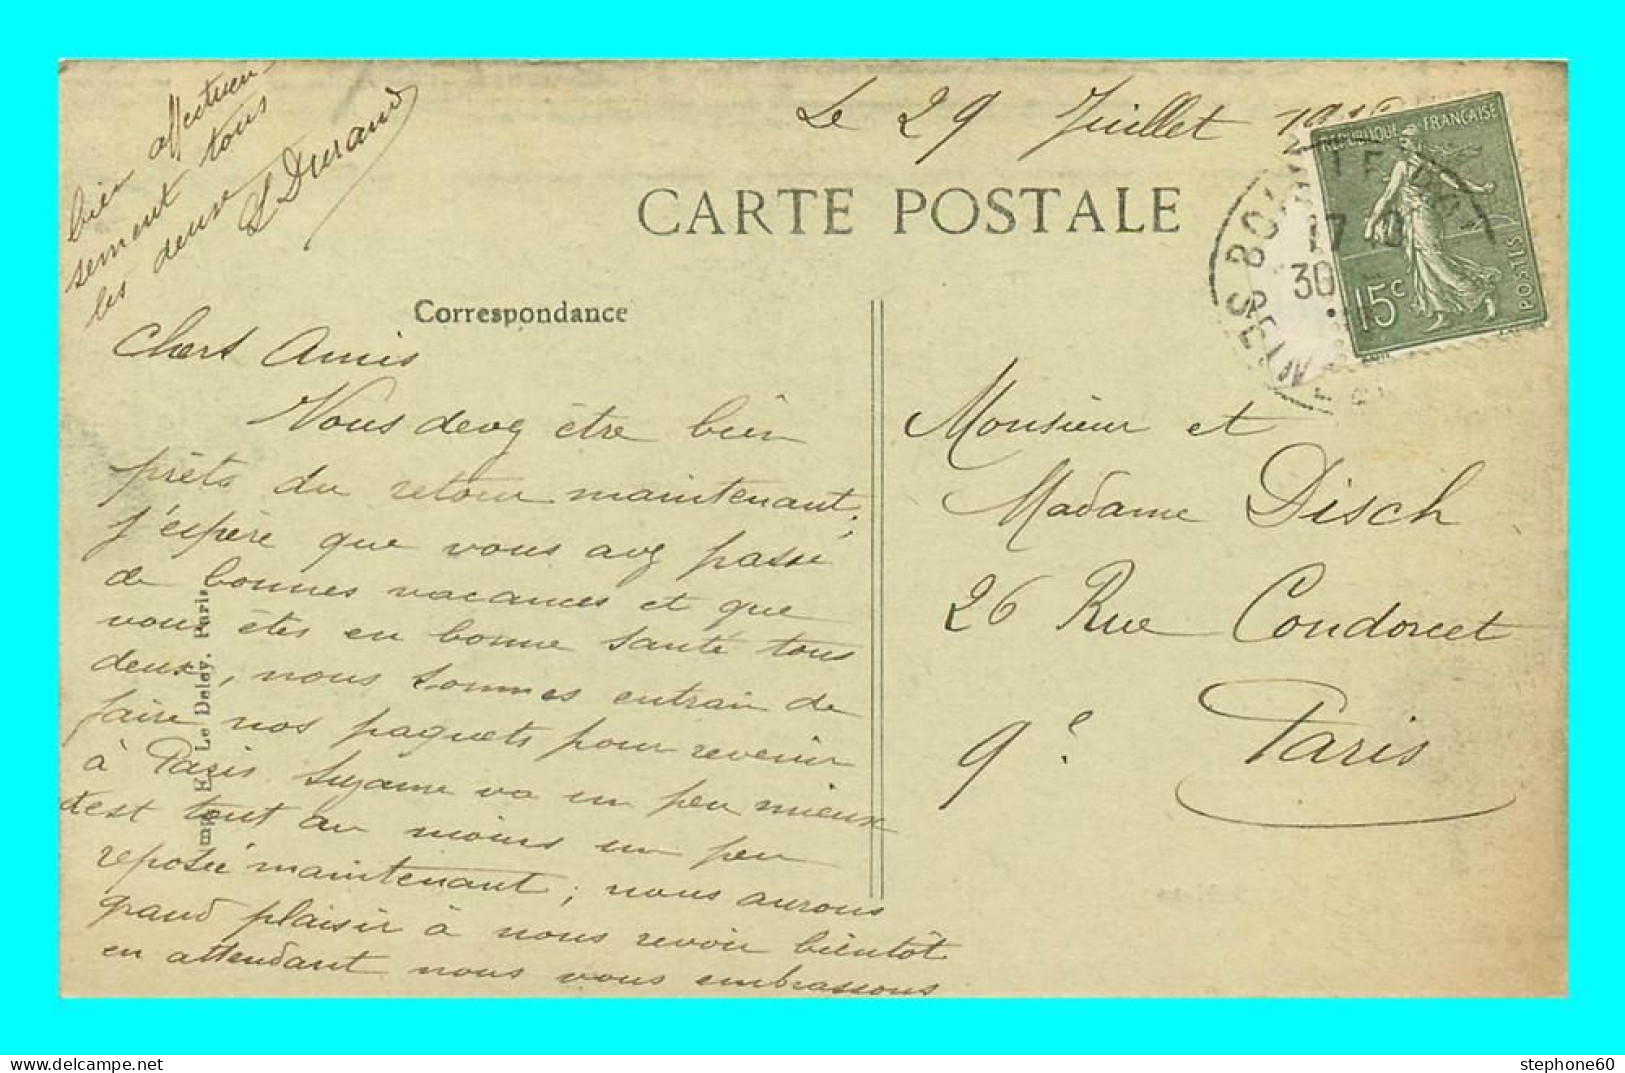 Le 29 Juillet
CARTE POSTALE
Correspondance
REPUBLIQUE FRANÇAISE
POSTES
15c
17
30
Chers Amis
Vous devez être bien
prêts du retour maintenant;
j'espère que vous avez passé
de bonnes vacances et que
vous êtes en bonne santé tous
deux, nous sommes entrain de
faire nos paquets pour revenir
à Paris. Suzanne va un peu mieux
c'est tout au moins un peu
reposée maintenant; nous aurons
grand plaisir à nous revoir bientôt
en attendant nous vous embrassons
bien affectueu-
sement tous
les deux
L Durand
Monsieur et
Madame Disch
26 Rue Condorcet
9e Paris
Imp. E. Le Deley. Paris
stephone60